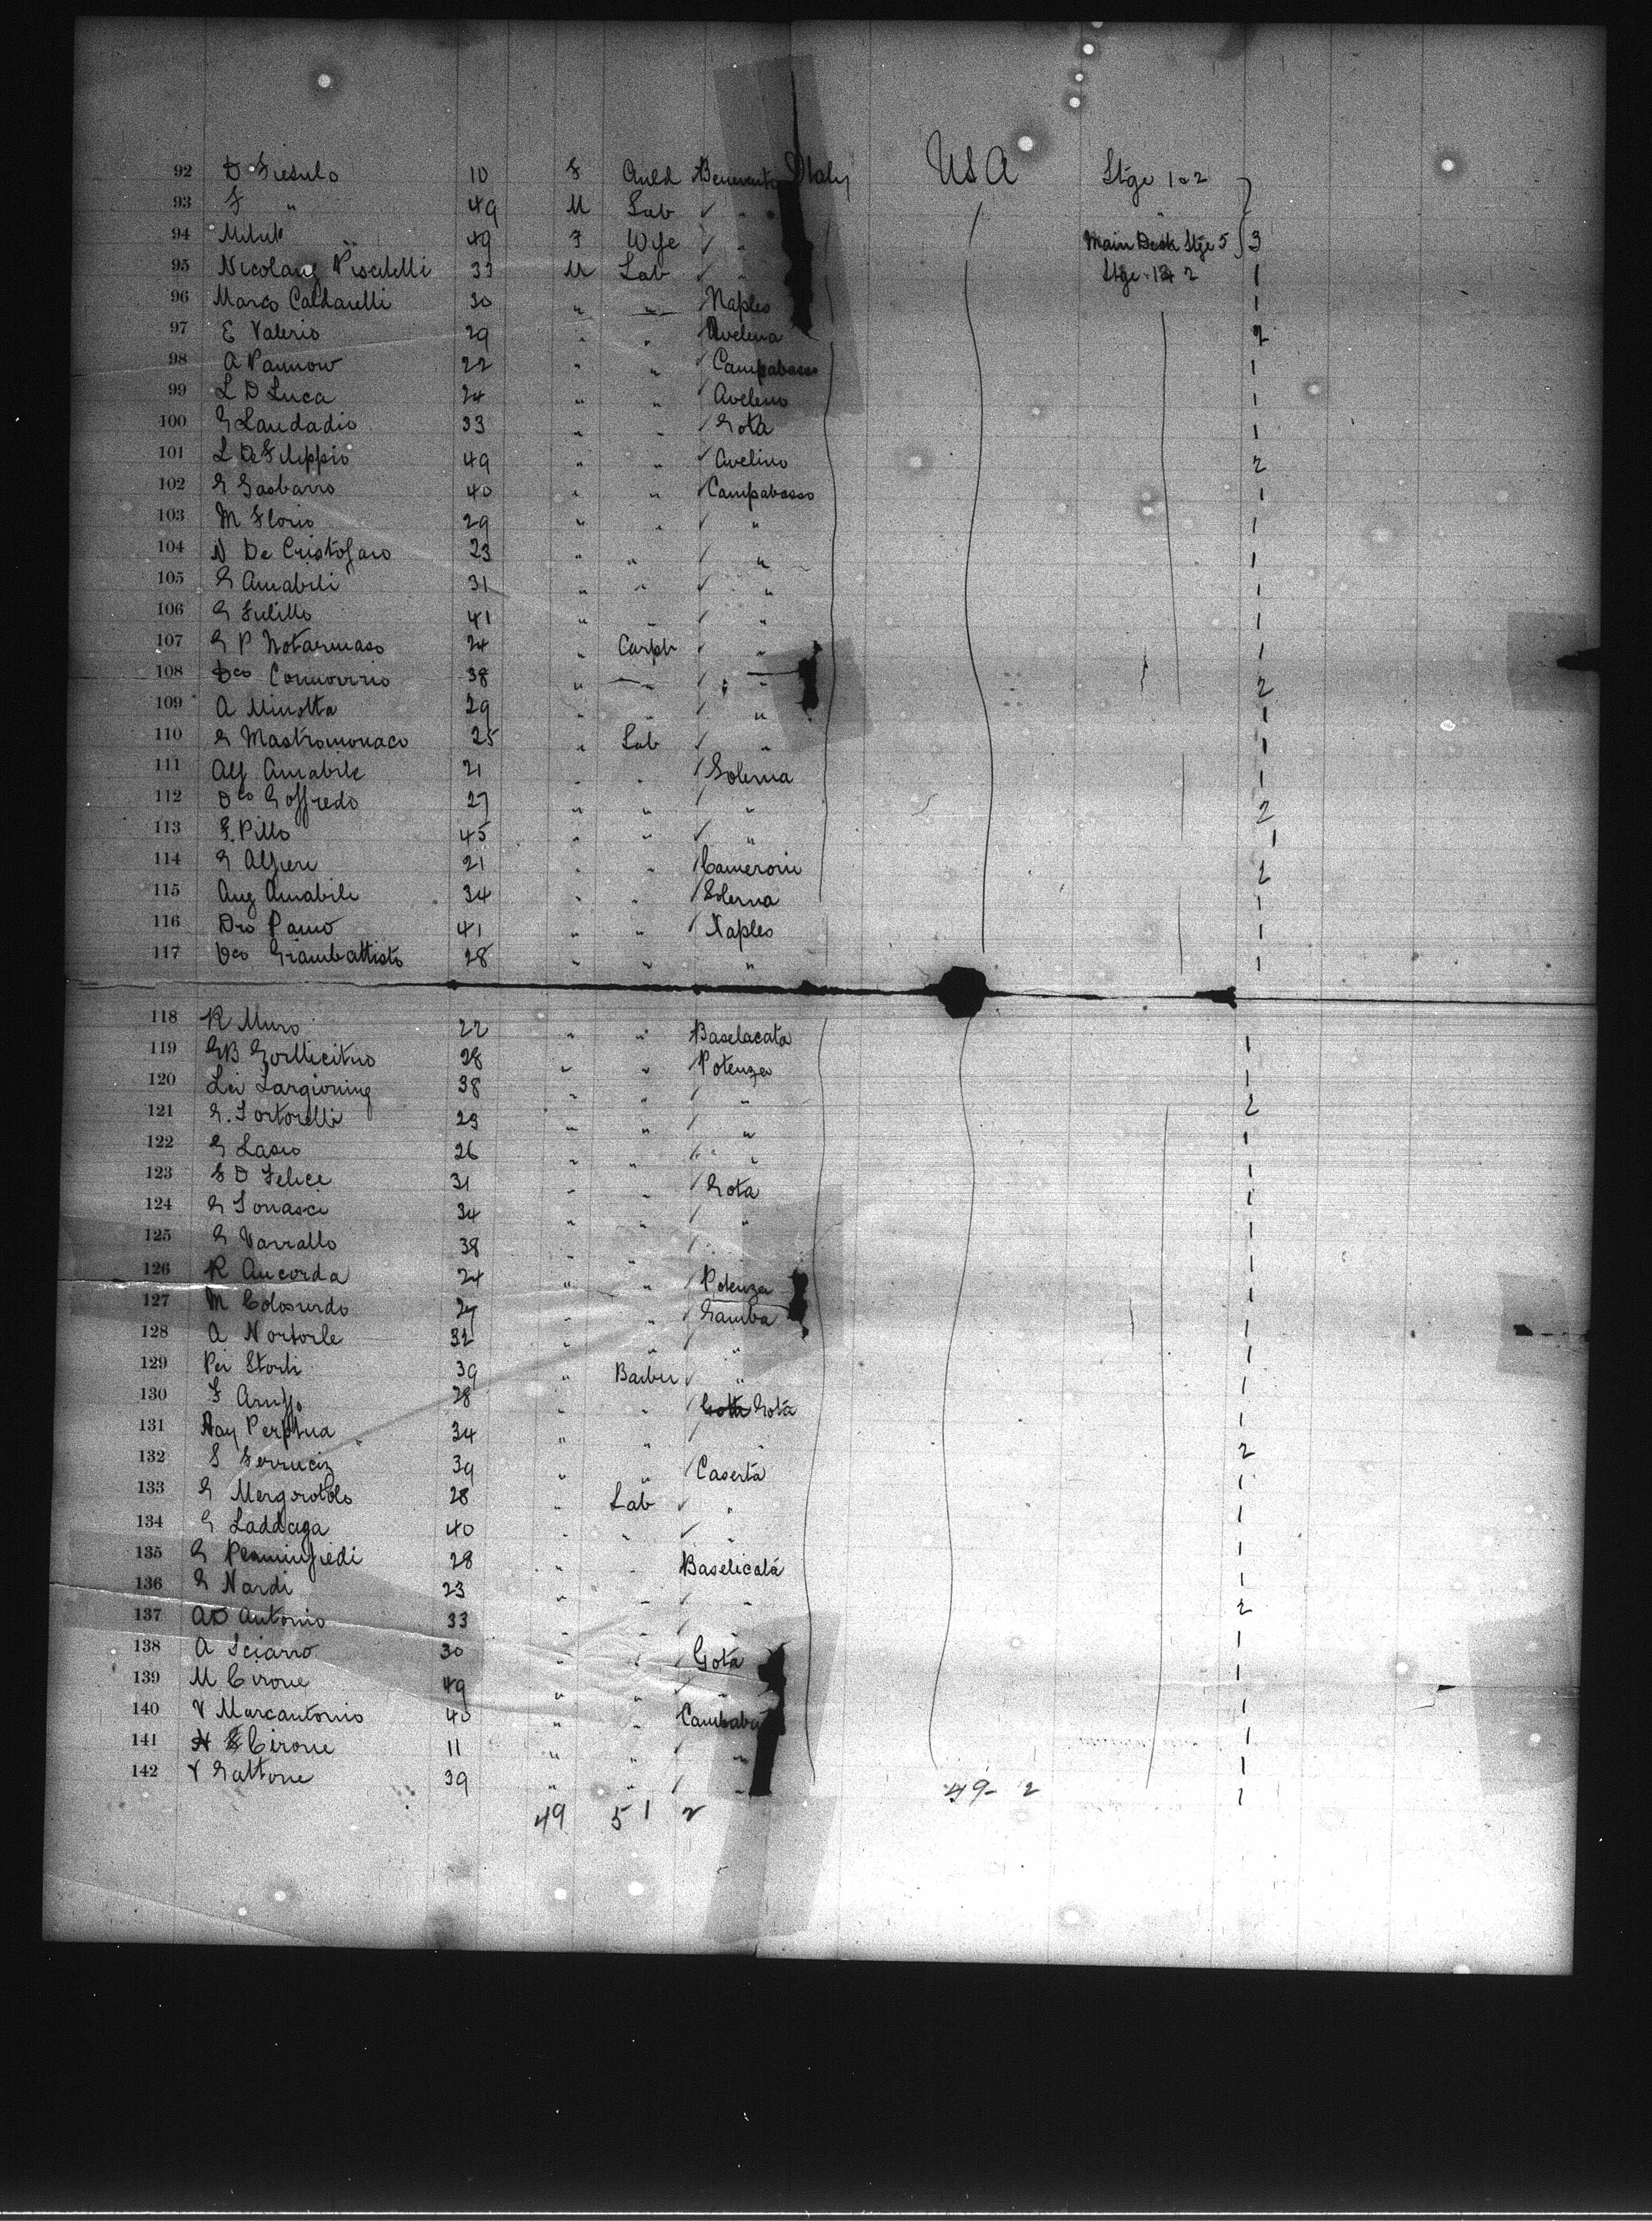 92 D Fiesulo 10 F Child Benevento Italy USA Stge 1 & 2
93 F " 49 M Lab ✓ "
94 " 49 F Wife ✓ " Main Deck Stge 5 3
95 Nicolang Piscitelli 33 M Lab ✓ " Stge 1 & 2 1
96 Marco Caldarelli 30 " " Naples 1
97 E Valerio 29 " " Avelina 2
98 A 22 " " Campabasso 1
99 L D Luca 24 " " Avelino 1
100 G Laudadio 33 " " Gota 1
101 L De Filippio 49 " " Avelino 2
102 G Gasbarro 40 " " Campabasso 1
103 M Florio 29 " " ✓ " 1
104 N De Cristofaro 23 " " ✓ " 1
105 G Amabili 31 " " ✓ " 1
106 G 41 " " ✓ " 1
107 G P Notarmaso 24 " Carptr ✓ " 1
108 Dco 38 " " ✓ " 2
109 A Minotta 29 " " " 1
110 G Mastromonaco 25 " Lab ✓ " 1
111 Alf Amabile 21 " " Solerna 1
112 Dco Goffredo 27 " " " 2
113 F. Pillo 45 " " ✓ " 1
114 G Alfieri 21 " " Cameroni 2
115 Aug Amabili 34 " " Solerna 1
116 41 " " Naples 1
117 Dco Giambattisto 28 " " " 1
118 R Muro 22 " " Baselacata
119 GB 28 " " Potenza 1
120 Lei Largioning 38 " " ✓ " 1
121 G. Tortorelli 23 " " ✓ " 2
122 G Lasio 26 " " ✓ " 1
123 F D Felice 31 " " Gota 1
124 G Tonasci 34 " " ✓ " 1
125 G Varrallo 38 " " ✓ 1
126 R Ancorda 24 " " Potenza 1
127 M Colosurdo 27 " " Gamba 1
128 A Nortorle 32 " " ✓ " 1
129 Storti 39 " Barber ✓ " 1
130 F 28 " " Gota Gota 1
131 Perptua 34 " " ✓ " 1
132 S Ferruciz 39 " " Caserta 2
133 G Mergorotolo 28 " Lab ✓ " 1
134 G Laddaga 40 " " ✓ " 1
135 G 28 " " Baselicata 1
136 G Nardi 23 " " ✓ " 1
137 AD Antonio 33 " " ✓ " 2
138 A Sciarro 30 " " Gota 1
139 M Cirone 49 " " ✓ " 1
140 V Marcantonio 40 " " 1
141 Cirone 11 " " ✓ " 1
142 V Gattone 39 " " ✓ " 1
49 51 2 49 - 2 1